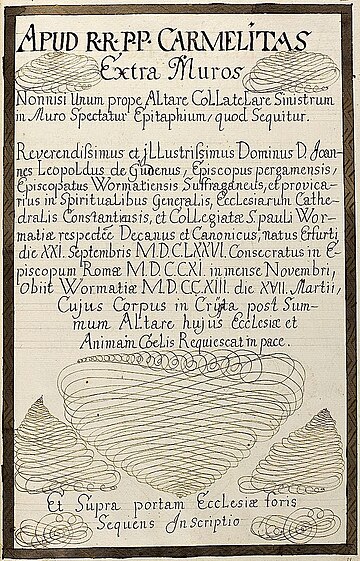 APUD R·R·P·P· CARMELITAS
Extra Muros
Nonnisi Unum prope Altare Collaterale Sinistrum
in Muro Spectatur Epitaphium, quod Sequitur.
Reverendissimus et jllustrissimus Dominus D. Joan-
nes Leopoldus de Gudenus, Episcopus pergamensis,
Episcopatus Wormatiensis Suffraganeus, et provica-
rius in Spiritualibus Generalis, Ecclesiarum Cathe-
dralis Constantensis, et Collegiatæ S. pauli Wor-
matiæ respectée Decanus et Canonicus, natus Erfurti
die XXI. Septembris M.D.C.LXXVI. Consecratus in E-
piscopum Romæ M.D.C.C.XI. in mense Novembri,
obiit Wormatiæ M.D.CC.XIII. die XVII. Martii,
Cujus Corpus in Crypta post Sum-
mum Altare hujus Ecclesiæ et
Animam Coelis Requiescat in pace.
Et Supra portam Ecclesiæ foris
Sequens Jnscriptio